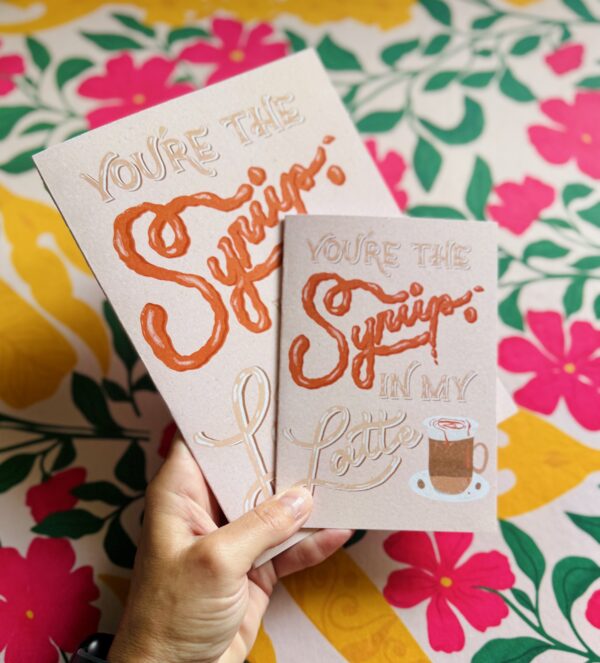 YOU'RE THE
Syrup
YOU'RE THE
Syrup
IN MY
Latte